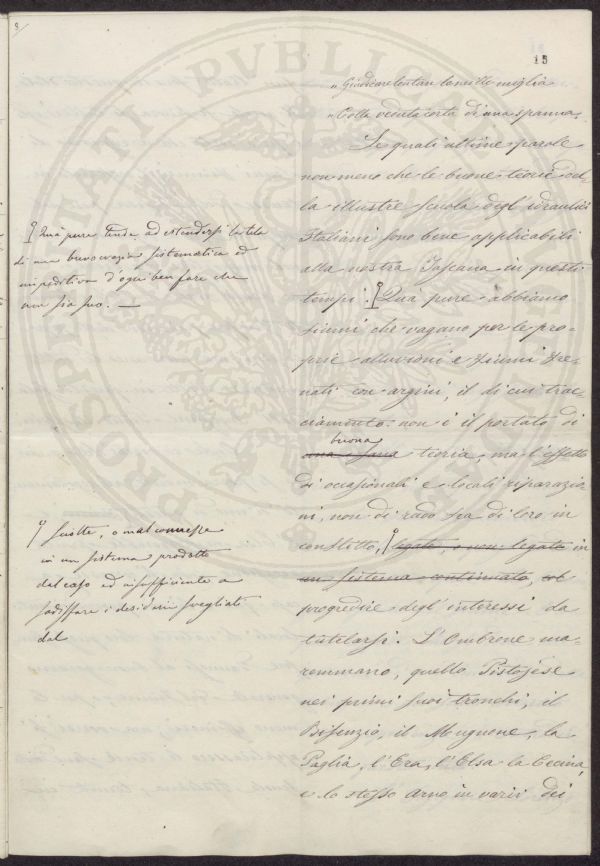 3.
15
„ Giudicar lontan le mille miglia
„ Colla veduta corta di una spanna.
Le quali ultime parole
non meno che le buone teorie del-
la illustre scuola degl'idraulici
Italiani sono bene applicabili
alla nostra Toscana in questi
tempi. Quà pure abbiamo
fiumi che vagano per le pro-
prie alluvioni e fiumi fre-
nati con argini, il di cui trac-
ciamento non è il portato di
buona
una sana teoria, ma l'effetto
di occasionali e locali riparazio
ni, non di rado fra di loro in
conflitto, legate, o non legate in
un sistema continuato, al
progredire degl'interessi da
tutelarsi. L'Ombrone ma-
remmano, quello Pistojese
nei primi suoi tronchi, il
Bisenzio, il Mugnone, la
Paglia, l'Era, l'Elsa la Cecina,
e lo stesso Arno in varii dei
Quà pure tende ad estendersi la tela
di una burocrazia sistematica ed
impeditiva d'ogni ben fare che
non sia suo. —
sciolte, o mal connesse
in un sistema prodotto
dal caso ed insufficiente a
sodisfare i desiderii svegliati
dal
PROSPERITATI PUBLICAE